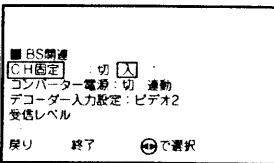 ■ BS関連
CH固定 :切 入
コンバーター電源:切 連動
デコーダー入力設定:ビデオ2
受信レベル
戻り 終了 で選択